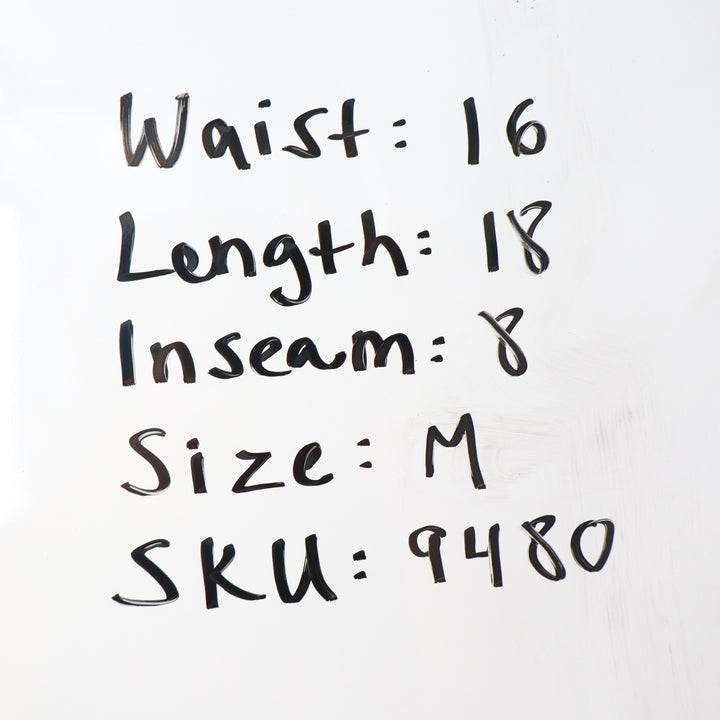 Waist: 16
Length: 18
Inseam: 8
Size: M
SKU: 9480